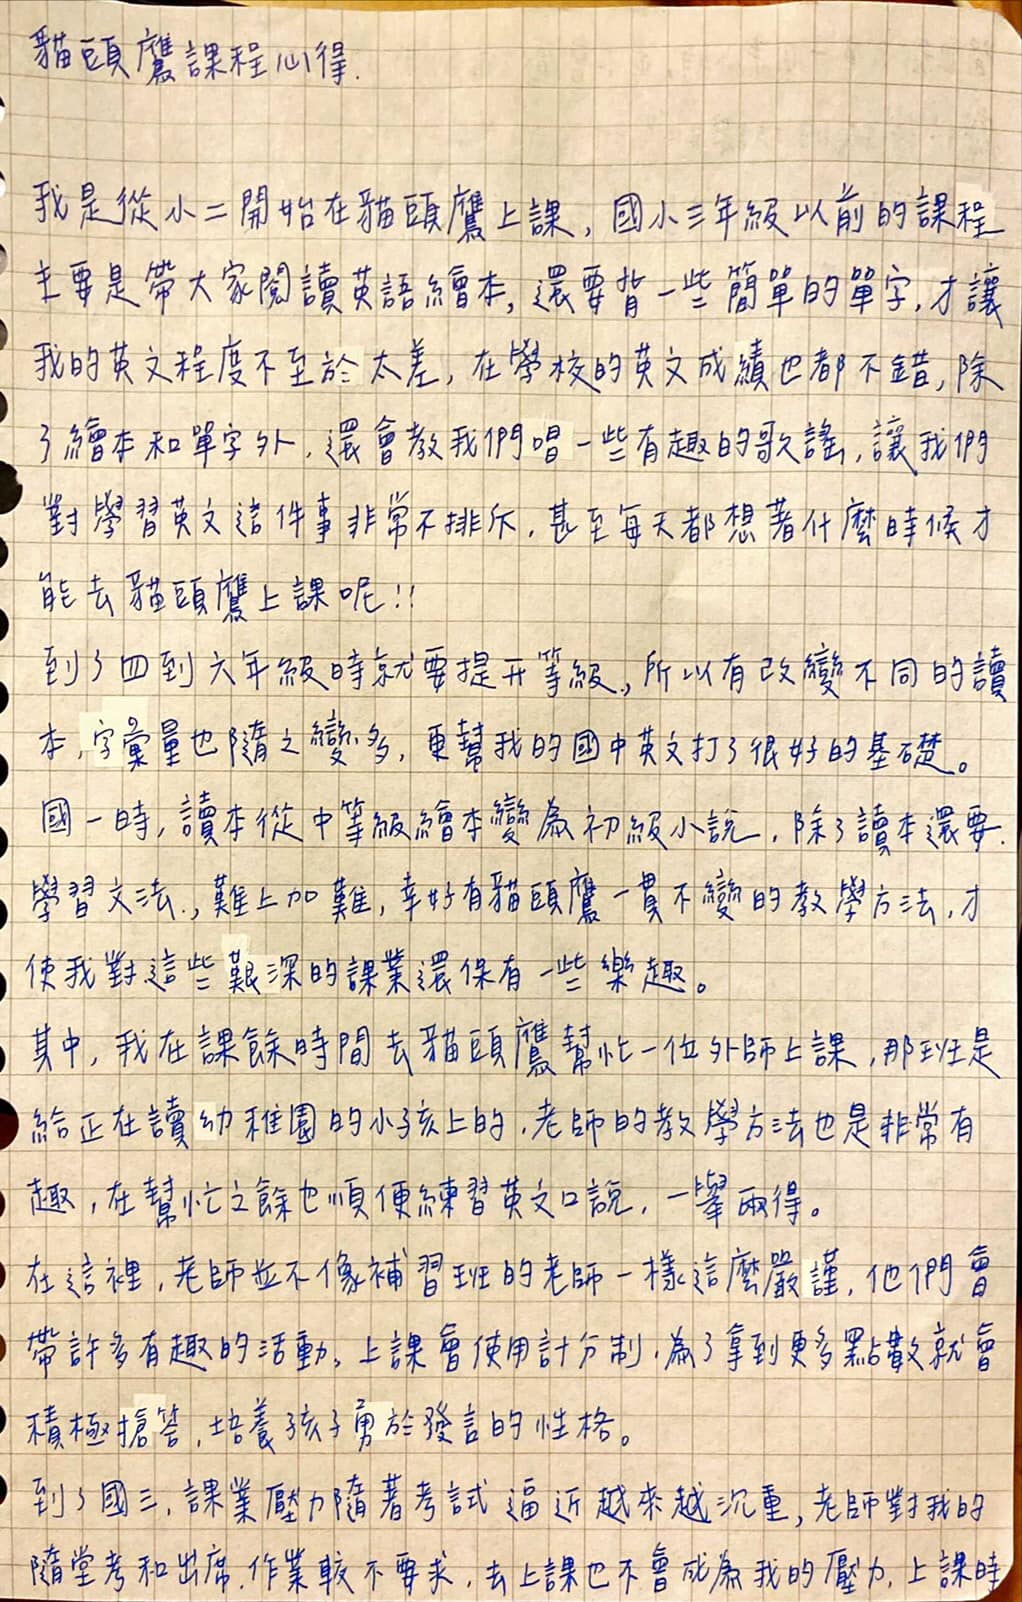 貓頭鷹課程心得.
我是從小二開始在貓頭鷹上課，國小三年級以前的課程
主要是帶大家閱讀英語繪本，還要背一些簡單的單字，才讓
我的英文程度不至於太差，在學校的英文成績也都不錯，除
了繪本和單字外，還會教我們唱一些有趣的歌謠，讓我們
對學習英文這件事非常不排斥，甚至每天都想著什麼時候才
能去貓頭鷹上課呢!!
到了四到六年級時就要提升等級，所以有改變不同的讀
本，字彙量也隨之變多，更幫我的國中英文打了很好的基礎。
國一時，讀本從中等級繪本變為初級小說，除了讀本還要
學習文法，難上加難，幸好有貓頭鷹一貫不變的教學方法，才
使我對這些艱深的課業還保有一些樂趣。
其中，我在課餘時間去貓頭鷹幫忙一位外師上課，那班是
給正在讀幼稚園的小孩上的，老師的教學方法也是非常有
趣，在幫忙之餘也順便練習英文口說，一舉兩得。
在這裡，老師並不像補習班的老師一樣這麼嚴謹，他們會
帶許多有趣的活動，上課會使用計分制，為了拿到更多點數就會
積極搶答，培養孩子勇於發言的性格。
到了國三，課業壓力隨著考試逼近越來越沉重，老師對我的
隨堂考和出席、作業較不要求，去上課也不會成為我的壓力，上課時